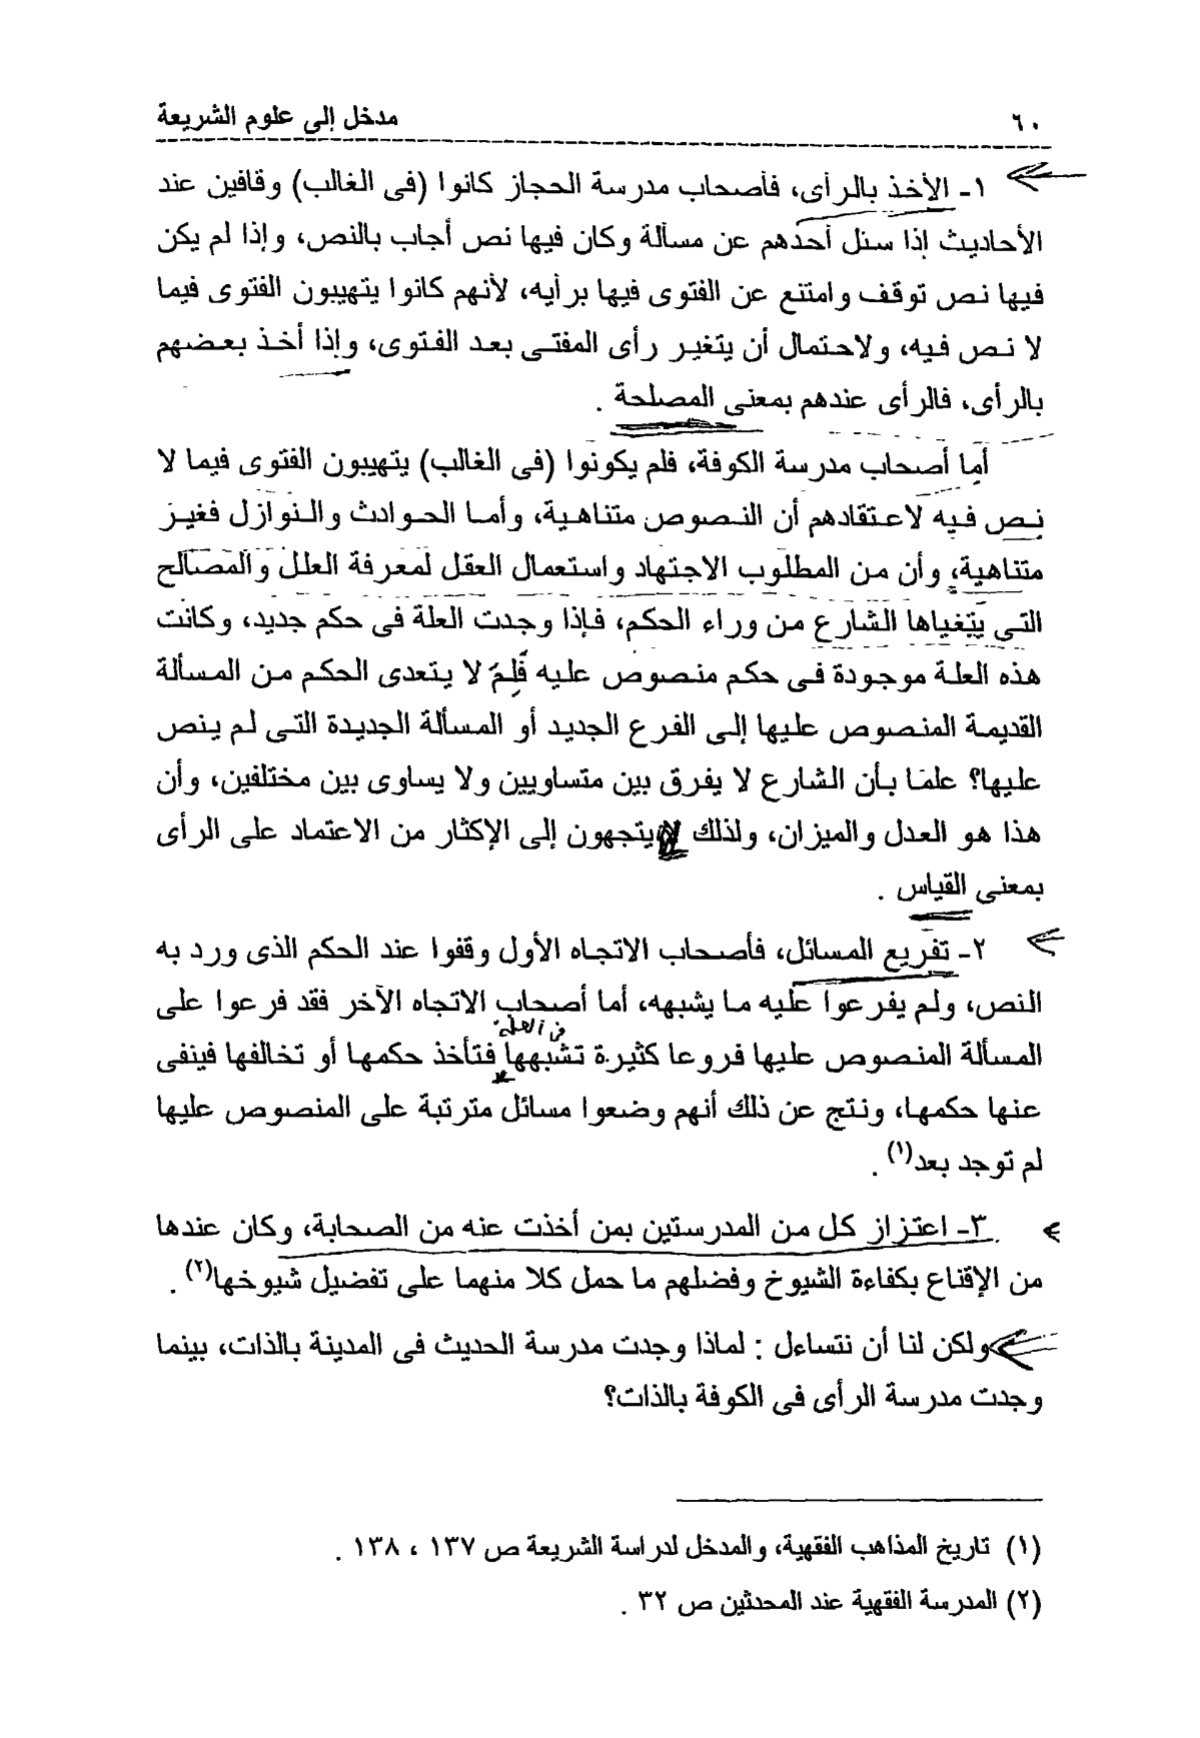 ٦٠
مدخل إلى علوم الشريعة
١- الأخذ بالرأى، فأصحاب مدرسة الحجاز كانوا (فى الغالب) وقافين عند
الأحاديث إذا سئل أحدهم عن مسألة وكان فيها نص أجاب بالنص، وإذا لم يكن
فيها نص توقف وامتنع عن الفتوى فيها برأيه، لأنهم كانوا يتهيبون الفتوى فيما
لا نص فيه، ولاحتمال أن يتغير رأى المفتى بعد الفتوى، وإذا أخذ بعضهم
بالرأى، فالرأى عندهم بمعنى المصلحة .
أما أصحاب مدرسة الكوفة، فلم يكونوا (فى الغالب) يتهيبون الفتوى فيما لا
نص فيه لاعتقادهم أن النصوص متناهية، وأما الحوادث والنوازل فغير
متناهية، وأن من المطلوب الاجتهاد واستعمال العقل لمعرفة العلل والمصالح
التى يتغياها الشارع من وراء الحكم، فإذا وجدت العلة فى حكم جديد، وكانت
هذه العلة موجودة فى حكم منصوص عليه فَلِمَ لا يتعدى الحكم من المسألة
القديمة المنصوص عليها إلى الفرع الجديد أو المسألة الجديدة التى لم ينص
عليها؟ علمًا بأن الشارع لا يفرق بين متساويين ولا يساوى بين مختلفين، وأن
هذا هو العدل والميزان، ولذلك يتجهون إلى الإكثار من الاعتماد على الرأى
بمعنى القياس .
٢- تفريع المسائل، فأصحاب الاتجاه الأول وقفوا عند الحكم الذى ورد به
النص، ولم يفرعوا عليه ما يشبهه، أما أصحاب الاتجاه الآخر فقد فرعوا على
فى العلة
المسألة المنصوص عليها فروعا كثيرة تشبهها فتأخذ حكمها أو تخالفها فينفى
عنها حكمها، ونتج عن ذلك أنهم وضعوا مسائل مترتبة على المنصوص عليها
لم توجد بعد(١) .
٣- اعتزاز كل من المدرستين بمن أخذت عنه من الصحابة، وكان عندها
من الإقناع بكفاءة الشيوخ وفضلهم ما حمل كلا منهما على تفضيل شيوخها(٢) .
ولكن لنا أن نتساءل : لماذا وجدت مدرسة الحديث فى المدينة بالذات، بينما
وجدت مدرسة الرأى فى الكوفة بالذات؟
(١) تاريخ المذاهب الفقهية، والمدخل لدراسة الشريعة ص ١٣٧ ، ١٣٨ .
(٢) المدرسة الفقهية عند المحدثين ص ٣٢ .